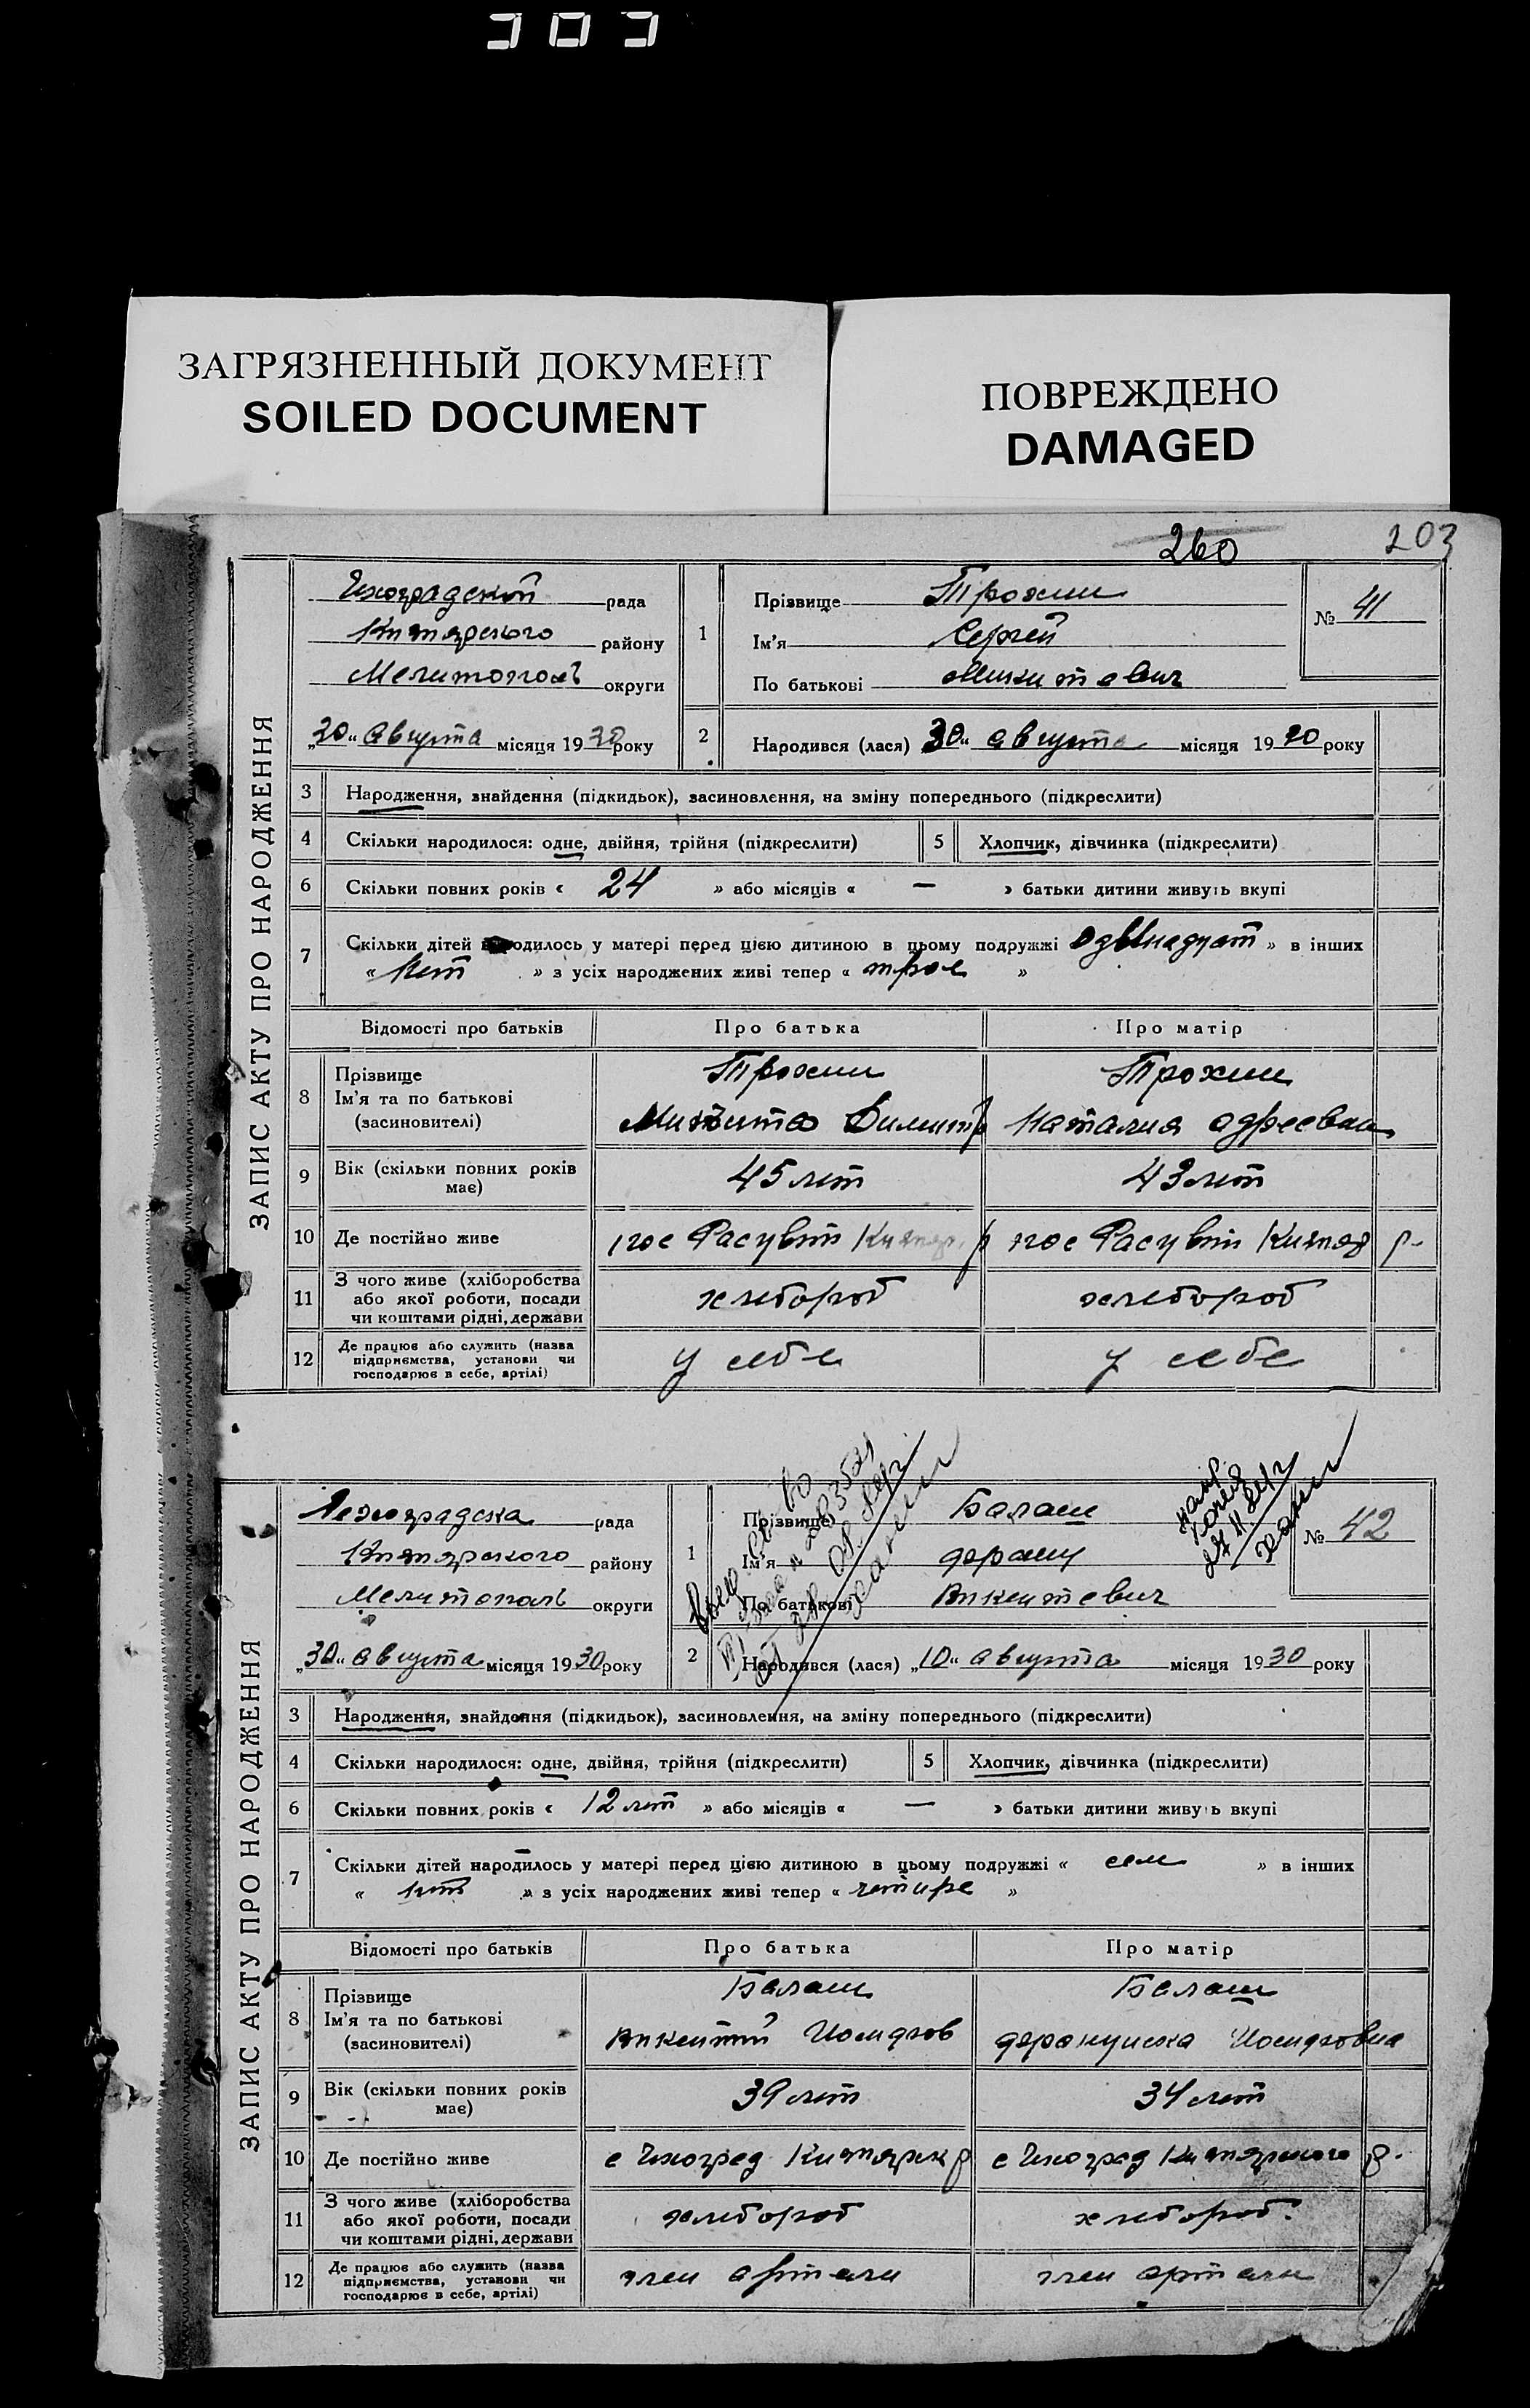 303
ЗАГРЯЗНЕННЫЙ ДОКУМЕНТ
SOILED DOCUMENT
ПОВРЕЖДЕНО
DAMAGED
260
203
ЗАПИС АКТУ ПРО НАРОДЖЕННЯ
Чехоградской рада
Кизиярского району
Мелитополь округи
„30“ августа місяця 1930 року
1
Прізвище Трохим
Ім'я Сергей
По батькові Микитевич
№ 41
2
Народився (лася) 30“ августа місяця 1930 року
3 Народження, знайдення (підкидьок), засиновлення, на зміну попереднього (підкреслити)
4 Скільки народилося: одне, двійня, трійня (підкреслити) 5 Хлопчик, дівчинка (підкреслити)
6 Скільки повних років « 24 » або місяців « — » батьки дитини живуть вкупі
7 Скільки дітей народилось у матері перед цією дитиною в цьому подружжі одинадцат » в інших
« Нет » з усіх народжених живі тепер « трое »
Відомості про батьків Про батька Про матір
8 Прізвище Трохим Трохим
Ім'я та по батькові Микита Димитр Наталия
(засновителі)
9 Вік (скільки повних років має) 45 лет 43 лет
10 Де постійно живе пос Расувет Кизияр. р пос Расувет Кизияр р-
11 З чого живе (хліборобства або якої роботи, посади чи коштами рідні, держави хлебороб хлебороб
12 Де працює або служить (назва підприємства, установи чи господарює в себе, артілі) у себе у себе
ЗАПИС АКТУ ПРО НАРОДЖЕННЯ
Чехоградска рада
Кизиярского району
Мелитополь округи
„30“ августа місяця 1930 року
1
Прізвище Балаш
Ім'я
По батькові Викентевич
№ 42
2
Народився (лася) „10“ августа місяця 1930 року
3 Народження, знайдення (підкидьок), засиновлення, на зміну попереднього (підкреслити)
4 Скільки народилося: одне, двійня, трійня (підкреслити) 5 Хлопчик, дівчинка (підкреслити)
6 Скільки повних років « 12 лет » або місяців « — » батьки дитини живуть вкупі
7 Скільки дітей народилось у матері перед цією дитиною в цьому подружжі « сем » в інших
« нет » з усіх народжених живі тепер « четире »
Відомості про батьків Про батька Про матір
8 Прізвище Балаш Балаш
Ім'я та по батькові Викентий Иосифов франциска Иосифовна
(засновителі)
9 Вік (скільки повних років має) 39 лет 34 лет
10 Де постійно живе с Чехоград Кизиярск р с Чехоград Кизиярского р-
11 З чого живе (хліборобства або якої роботи, посади чи коштами рідні, держави хлебороб хлебороб.
12 Де працює або служить (назва підприємства, установи чи господарює в себе, артілі) член артели член артели